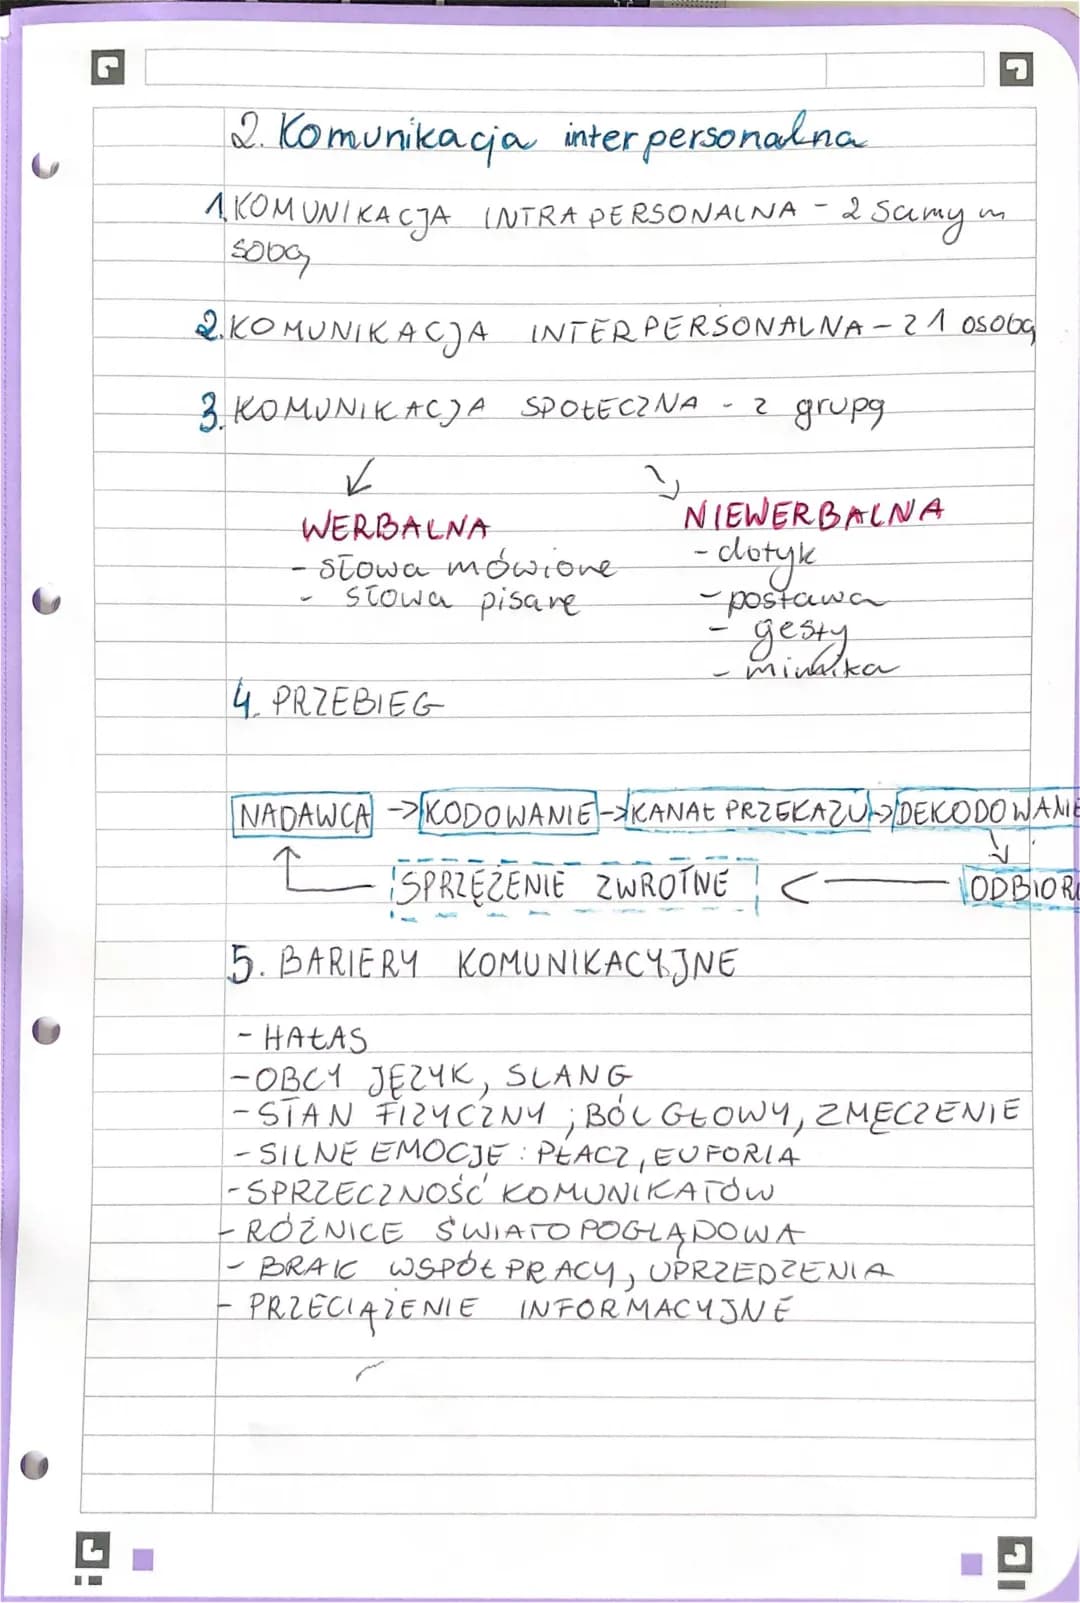 2. Komunikacja interpersonalna
1. KOMUNIKACJA INTRAPERSONALNA - z samym
sobą
2. KOMUNIKACJA INTERPERSONALNA - z 1 osobą
3. KOMUNIKACJA SPOŁECZNA - z grupą
WERBALNA
- słowa mówione
- słowa pisane
NIEWERBALNA
- dotyk
- postawa
- gesty
- mimika
4. PRZEBIEG
NADAWCA -> KODOWANIE -> KANAŁ PRZEKAZU -> DEKODOWANIE
SPRZĘŻENIE ZWROTNE <- ODBIOR
5. BARIERY KOMUNIKACYJNE
- HAŁAS
- OBCY JĘZYK, SLANG
- STAN FIZYCZNY ; BÓL GŁOWY, ZMĘCZENIE
- SILNE EMOCJE : PŁACZ, EUFORIA
- SPRZECZNOŚĆ KOMUNIKATÓW
- RÓŻNICE ŚWIATOPOGLĄDOWA
- BRAK WSPÓŁPRACY, UPRZEDZENIA
- PRZECIĄŻENIE INFORMACYJNE